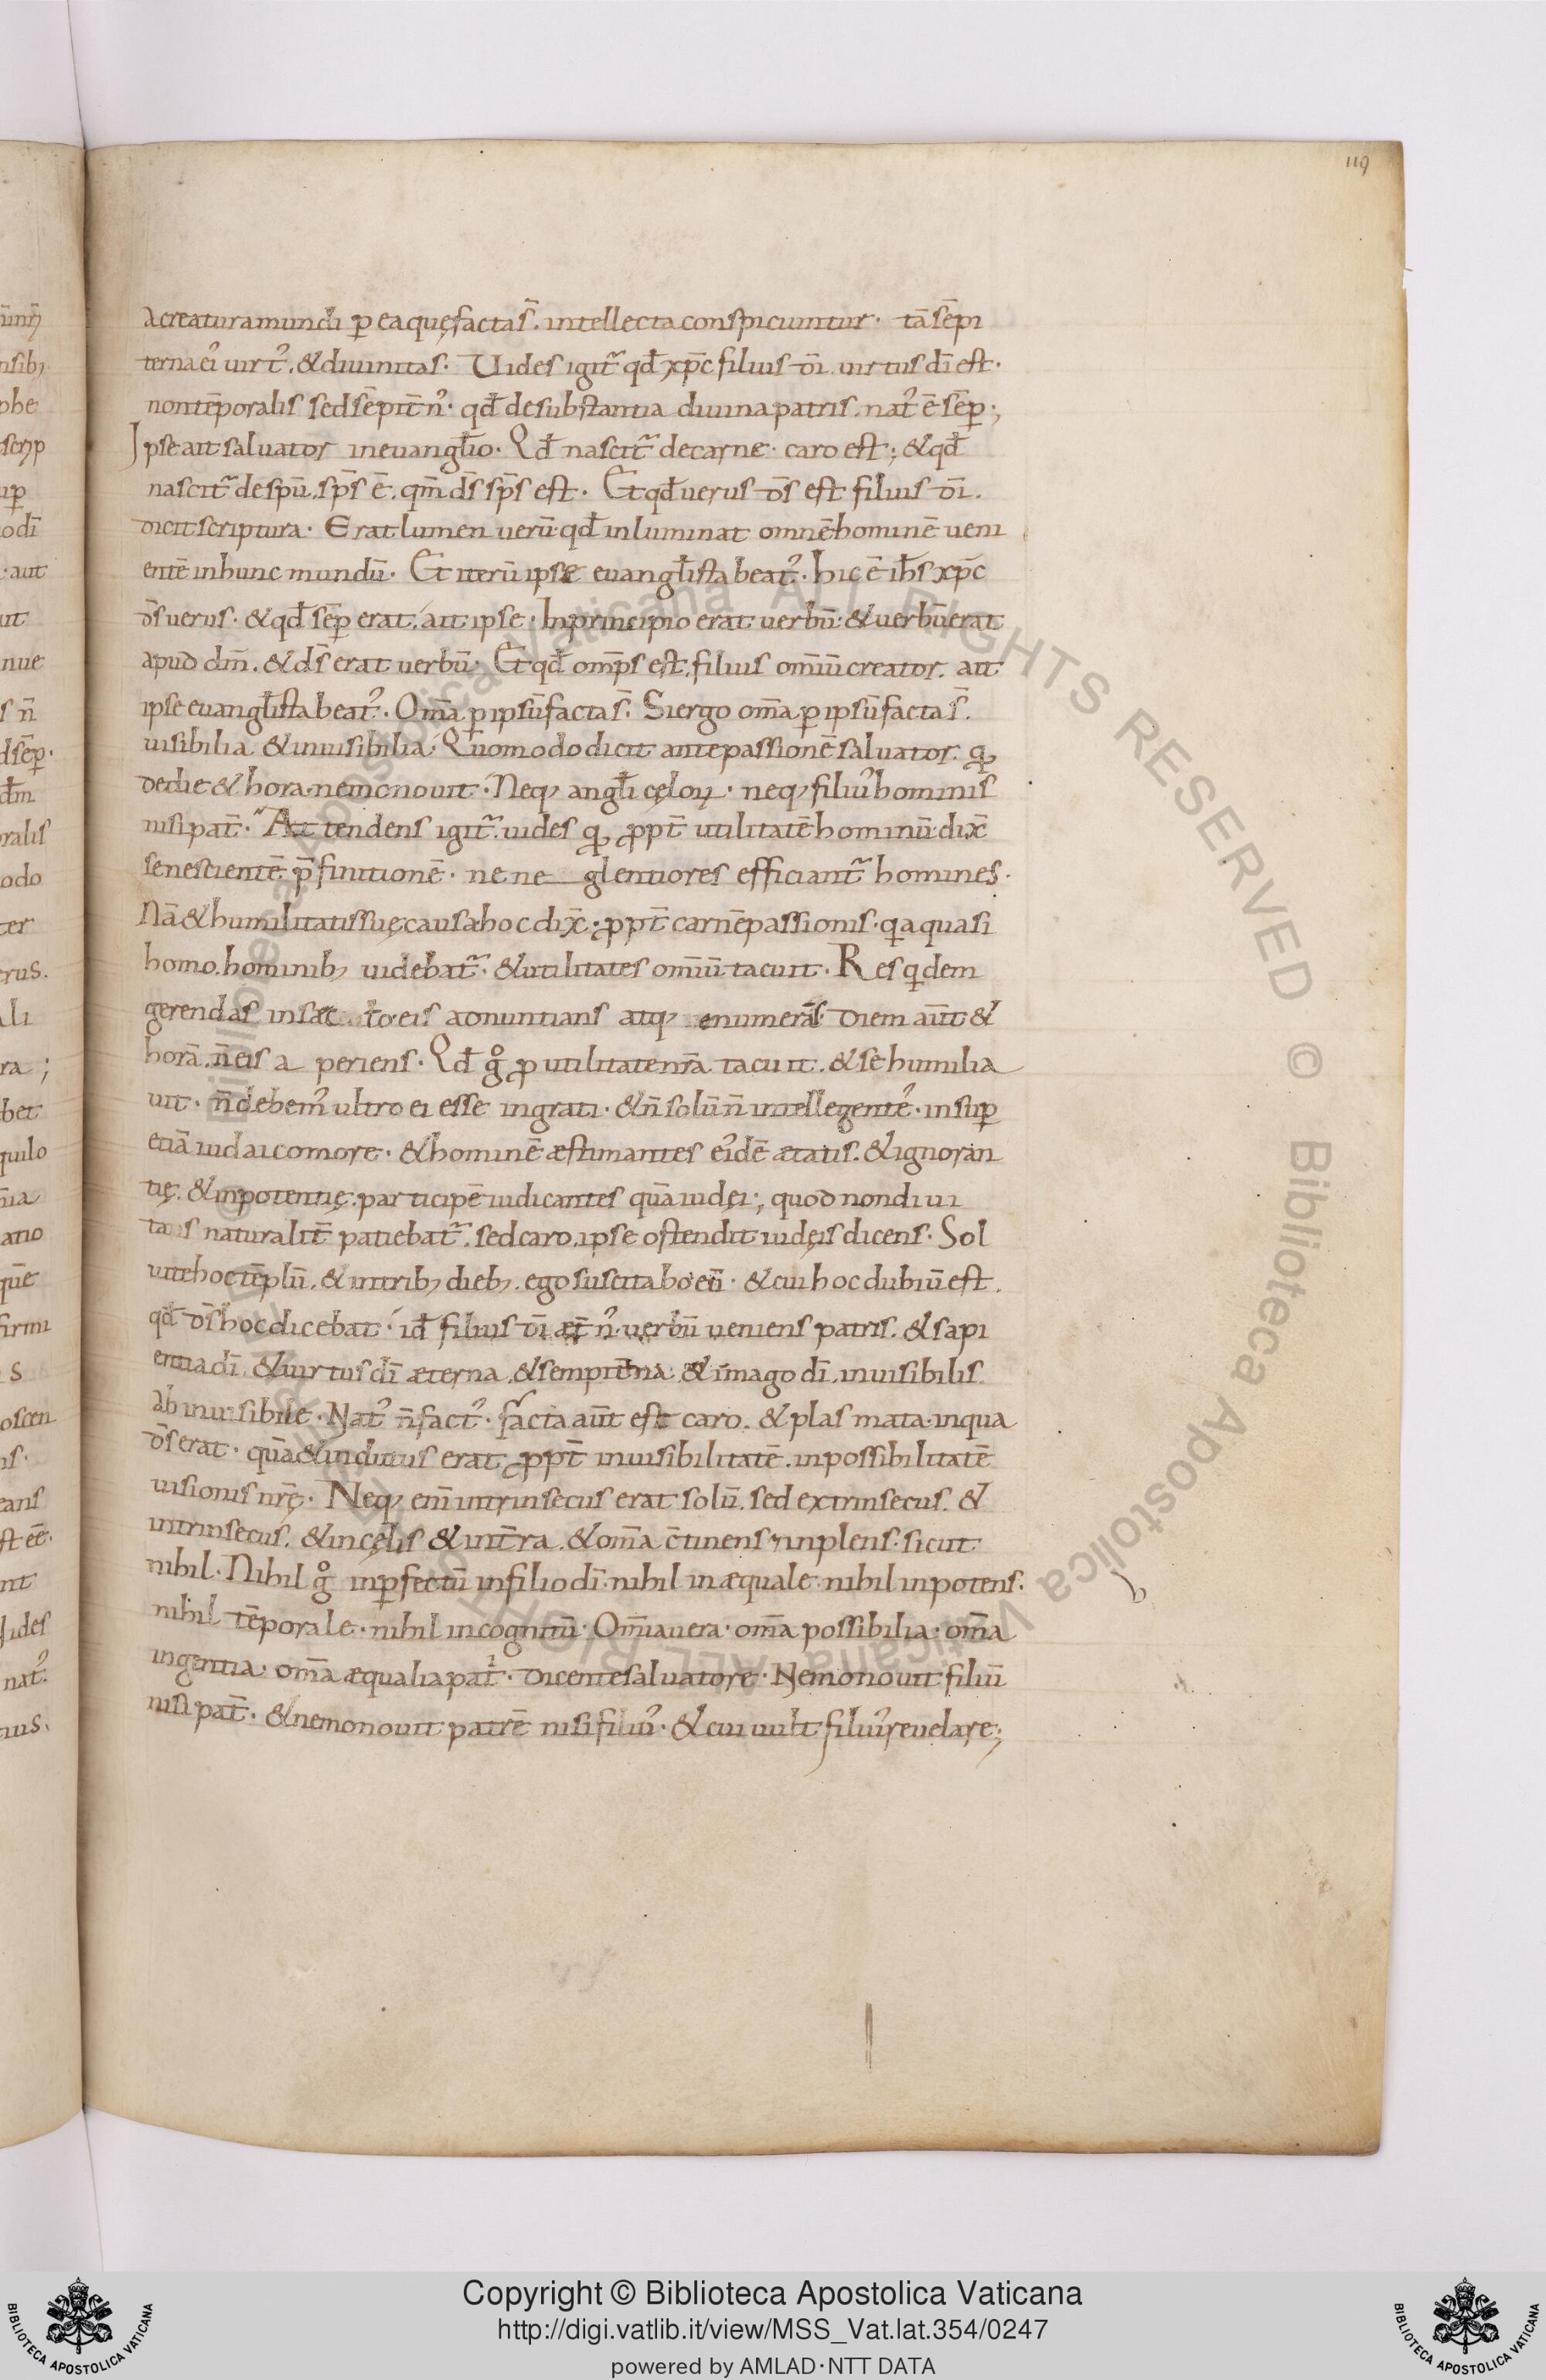 119
a creatura mundi ꝑ ea quę facta s̄. intellecta conspiciuntur. tā sēpi
terna ei᾿ uirt᾿. & diuinitas. Uides igit̃ qđ xp̄c filius dī. uirtus dī est.
non tēporalis sed sēpit̄n᾿. qđ de substantia diuina patris. nat᾿ ē sēꝑ;
Ipse ait saluator in euangłio. Qđ nascit̃ de carne. caro est; & qđ
nascit̃ de spū. sp̄s ē. qm̄ ds̄ sp̄s est. Et qđ uerus ds̄ est filius dī.
dicit scriptura. Erat lumen uerū. qđ inluminat omnē hominē ueni
entē in hunc mundū. Et iterū ipse euangłista beat᾿. hic ē ihs̄ xp̄c
ds̄ uerus. & qđ sēꝑ erat. ait ipse. In principio erat uerbū. & uerbū erat
apud dm̄. & ds̄ erat uerbū. Et qđ omp̄s est. filius omīū creator. ait
ipse euangłista beat᾿. Om̄a ꝑ ipsū facta s̄. Si ergo om̄a ꝑ ipsū facta s̄.
uisibilia & inuisibilia. Quomodo dicit ante passionē saluator. qꝫ
de die & hora nemo nouit. Neqꝫ angłi cęloꝝ. neqꝫ filiu᾿ hominis
nisi pat̄. Attendens igit̃. uides qꝫ ꝓpt̄ utilitatē hominū. dix̄
se nescientē p̄finitionē. ne neglentiores efficiant̃ homines.
Nā & humilitatis suę causa hoc dix̄. ꝓpt̄ carnē passionis. qa quasi
homo. hominibꝫ uidebat̃. & utilitates omīū tacuit. Res qdem
gerendas in sæculo eis adnuntians atqꝫ enumerās. diem aūt &
horā. n̄ eis aperiens. Qđ g̊ ꝓ utilitate nr̄a tacuit. & se humilia
uit. n̄ debem᾿ ultro ei esse ingrati. & n̄ solū n̄ intellegente᾿. insuꝑ
etiā iudaico more. & hominē æstimantes ei᾿dē ætatis. & ignoran
tię. & inpotentię. participē iudicantes quā iudęi; quod non diui
tas naturalit̄ patiebat̃. sed caro. ipse ostendit iudęis dicens. Sol
uite hoc tēplū. & in tribꝫ diebꝫ. ego suscitabo eū. & cui hoc dubiū est.
qđ ds̄ hoc dicebat. iđ filius dī æt̄n᾿. uerbū ueniens patris. & sapi
entia dī. & uirtus dī æterna. & sempit̄na. & imago dī. inuisibilis.
ab inuisibile. Nat᾿ n̄ fact᾿. facta aūt est caro. & plasmata. in qua
ds̄ erat. quā & indutus erat ꝓpt̄ inuisibilitatē. inpossibilitatē
uisionis nr̄ę. Neqꝫ em̄ intrinsecus erat solū. sed extrinsecus. &
intrinsecus. & in cęlis & in t̄ra. & om̄a c̄tinens inplens. sicut
nihil. Nihil g̊ inꝑfectū in filio dī. nihil inæquale. nihil inpotens.
nihil tēporale. nihil incognitū. Om̄ia uera. om̄a possibilia. om̄a
ingentia. om̄a æqualia pat̍. dicente saluatore. Nemo nouit filiū
nisi pat̄. & nemo nouit patrē nisi filiu᾿. & cui uult filiu᾿ reuelare;
Copyright © Biblioteca Apostolica Vaticana
http://digi.vatlib.it/view/MSS_Vat.lat.354/0247
powered by AMLAD·NTT DATA